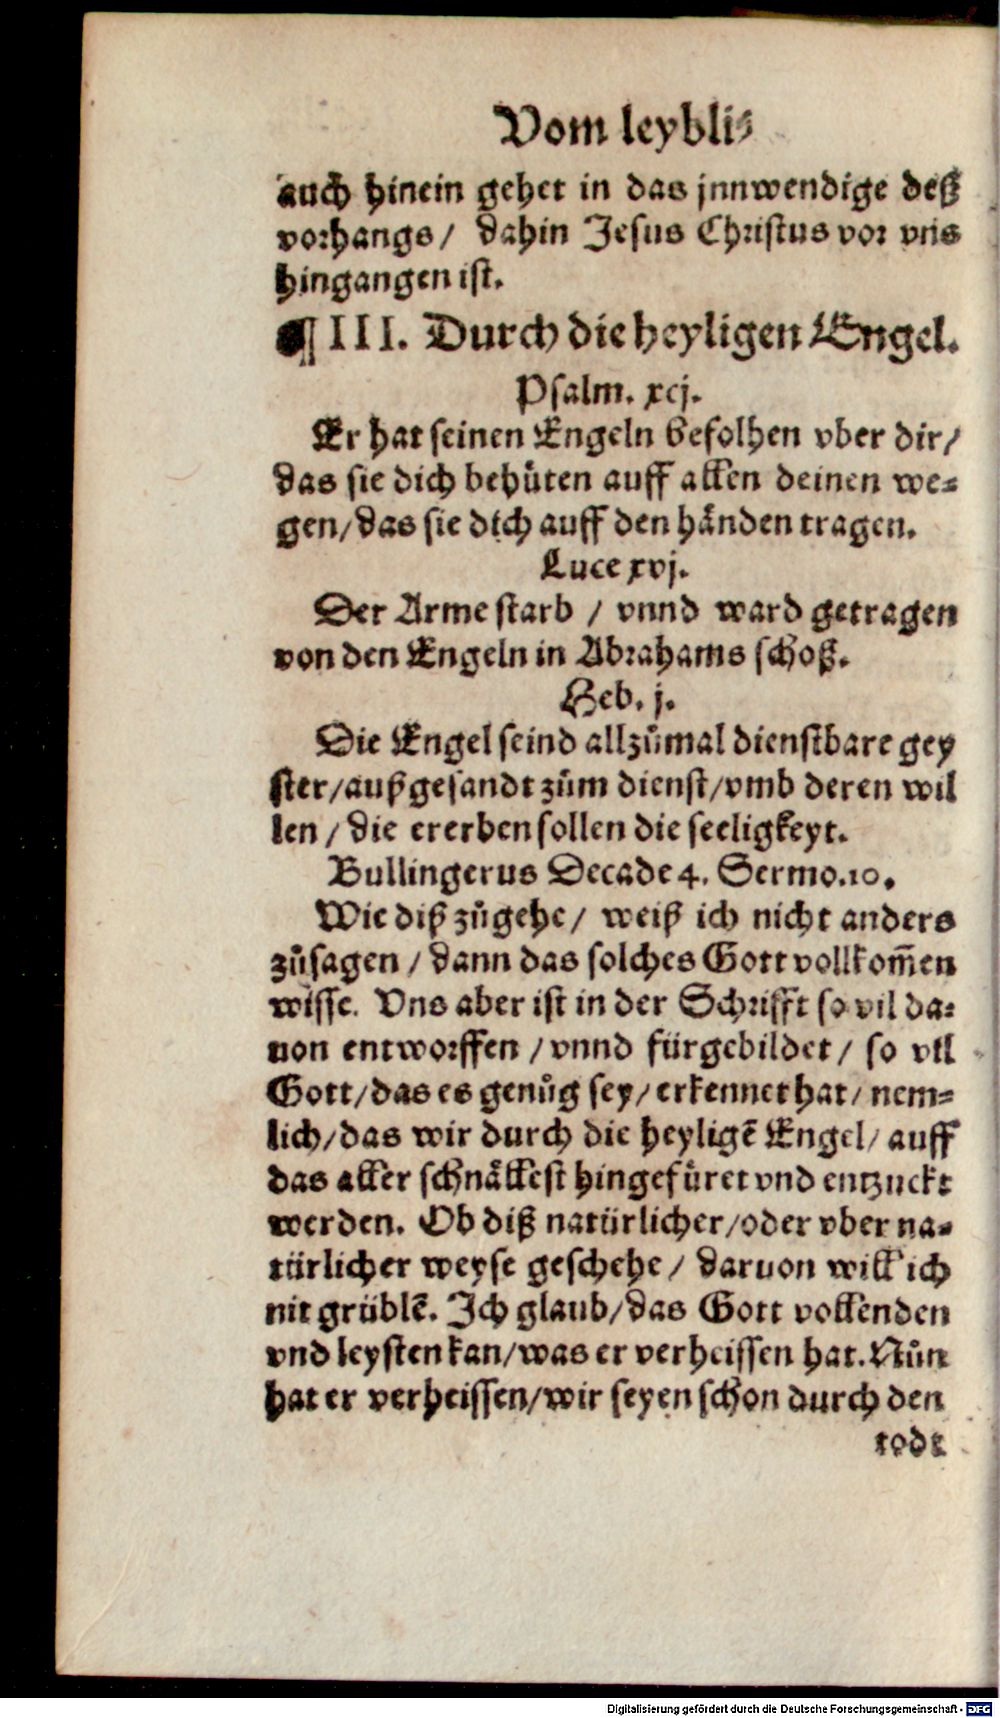 Vom leybli⸗
auch hinein gehet in das jnnwendige deß
vorhangs / dahin Jesus Christus vor vns
hingangen ist.
¶ III. Durch die heyligen Engel.
Psalm. xcj.
Er hat seinen Engeln befolhen vber dir /
das sie dich behuͤten auff allen deinen we⸗
gen / das sie dich auff den haͤnden tragen.
Luce xvj.
Der Arme starb / vnnd ward getragen
von den Engeln in Abrahams schoß.
Heb. j.
Die Engel seind allzuͦmal dienstbare gey
ster / außgesandt zuͦm dienst / vmb deren wil
len / die ererben sollen die seeligkeyt.
Bullingerus Decade 4. Sermo. 10.
Wie diß zuͦgehe / weiß ich nicht anders
zuͦsagen / dann das solches Gott vollkom̃en
wisse. Vns aber ist in der Schrifft so vil da⸗
uon entworffen / vnnd fürgebildet / so vil
Gott / das es genuͦg sey / erkennet hat / nem⸗
lich / das wir durch die heyligē Engel / auff
das aller schnaͤllest hingefuͤret vnd entzuckt
werden. Ob diß natürlicher / oder vber na⸗
türlicher weyse geschehe / daruon will ich
nit grüblē. Ich glaub / das Gott vollenden
vnd leysten kan / was er verheissen hat. Nuͦn
hat er verheissen / wir seyen schon durch den
todt
Digitalisierung gefördert durch die Deutsche Forschungsgemeinschaft - DFG